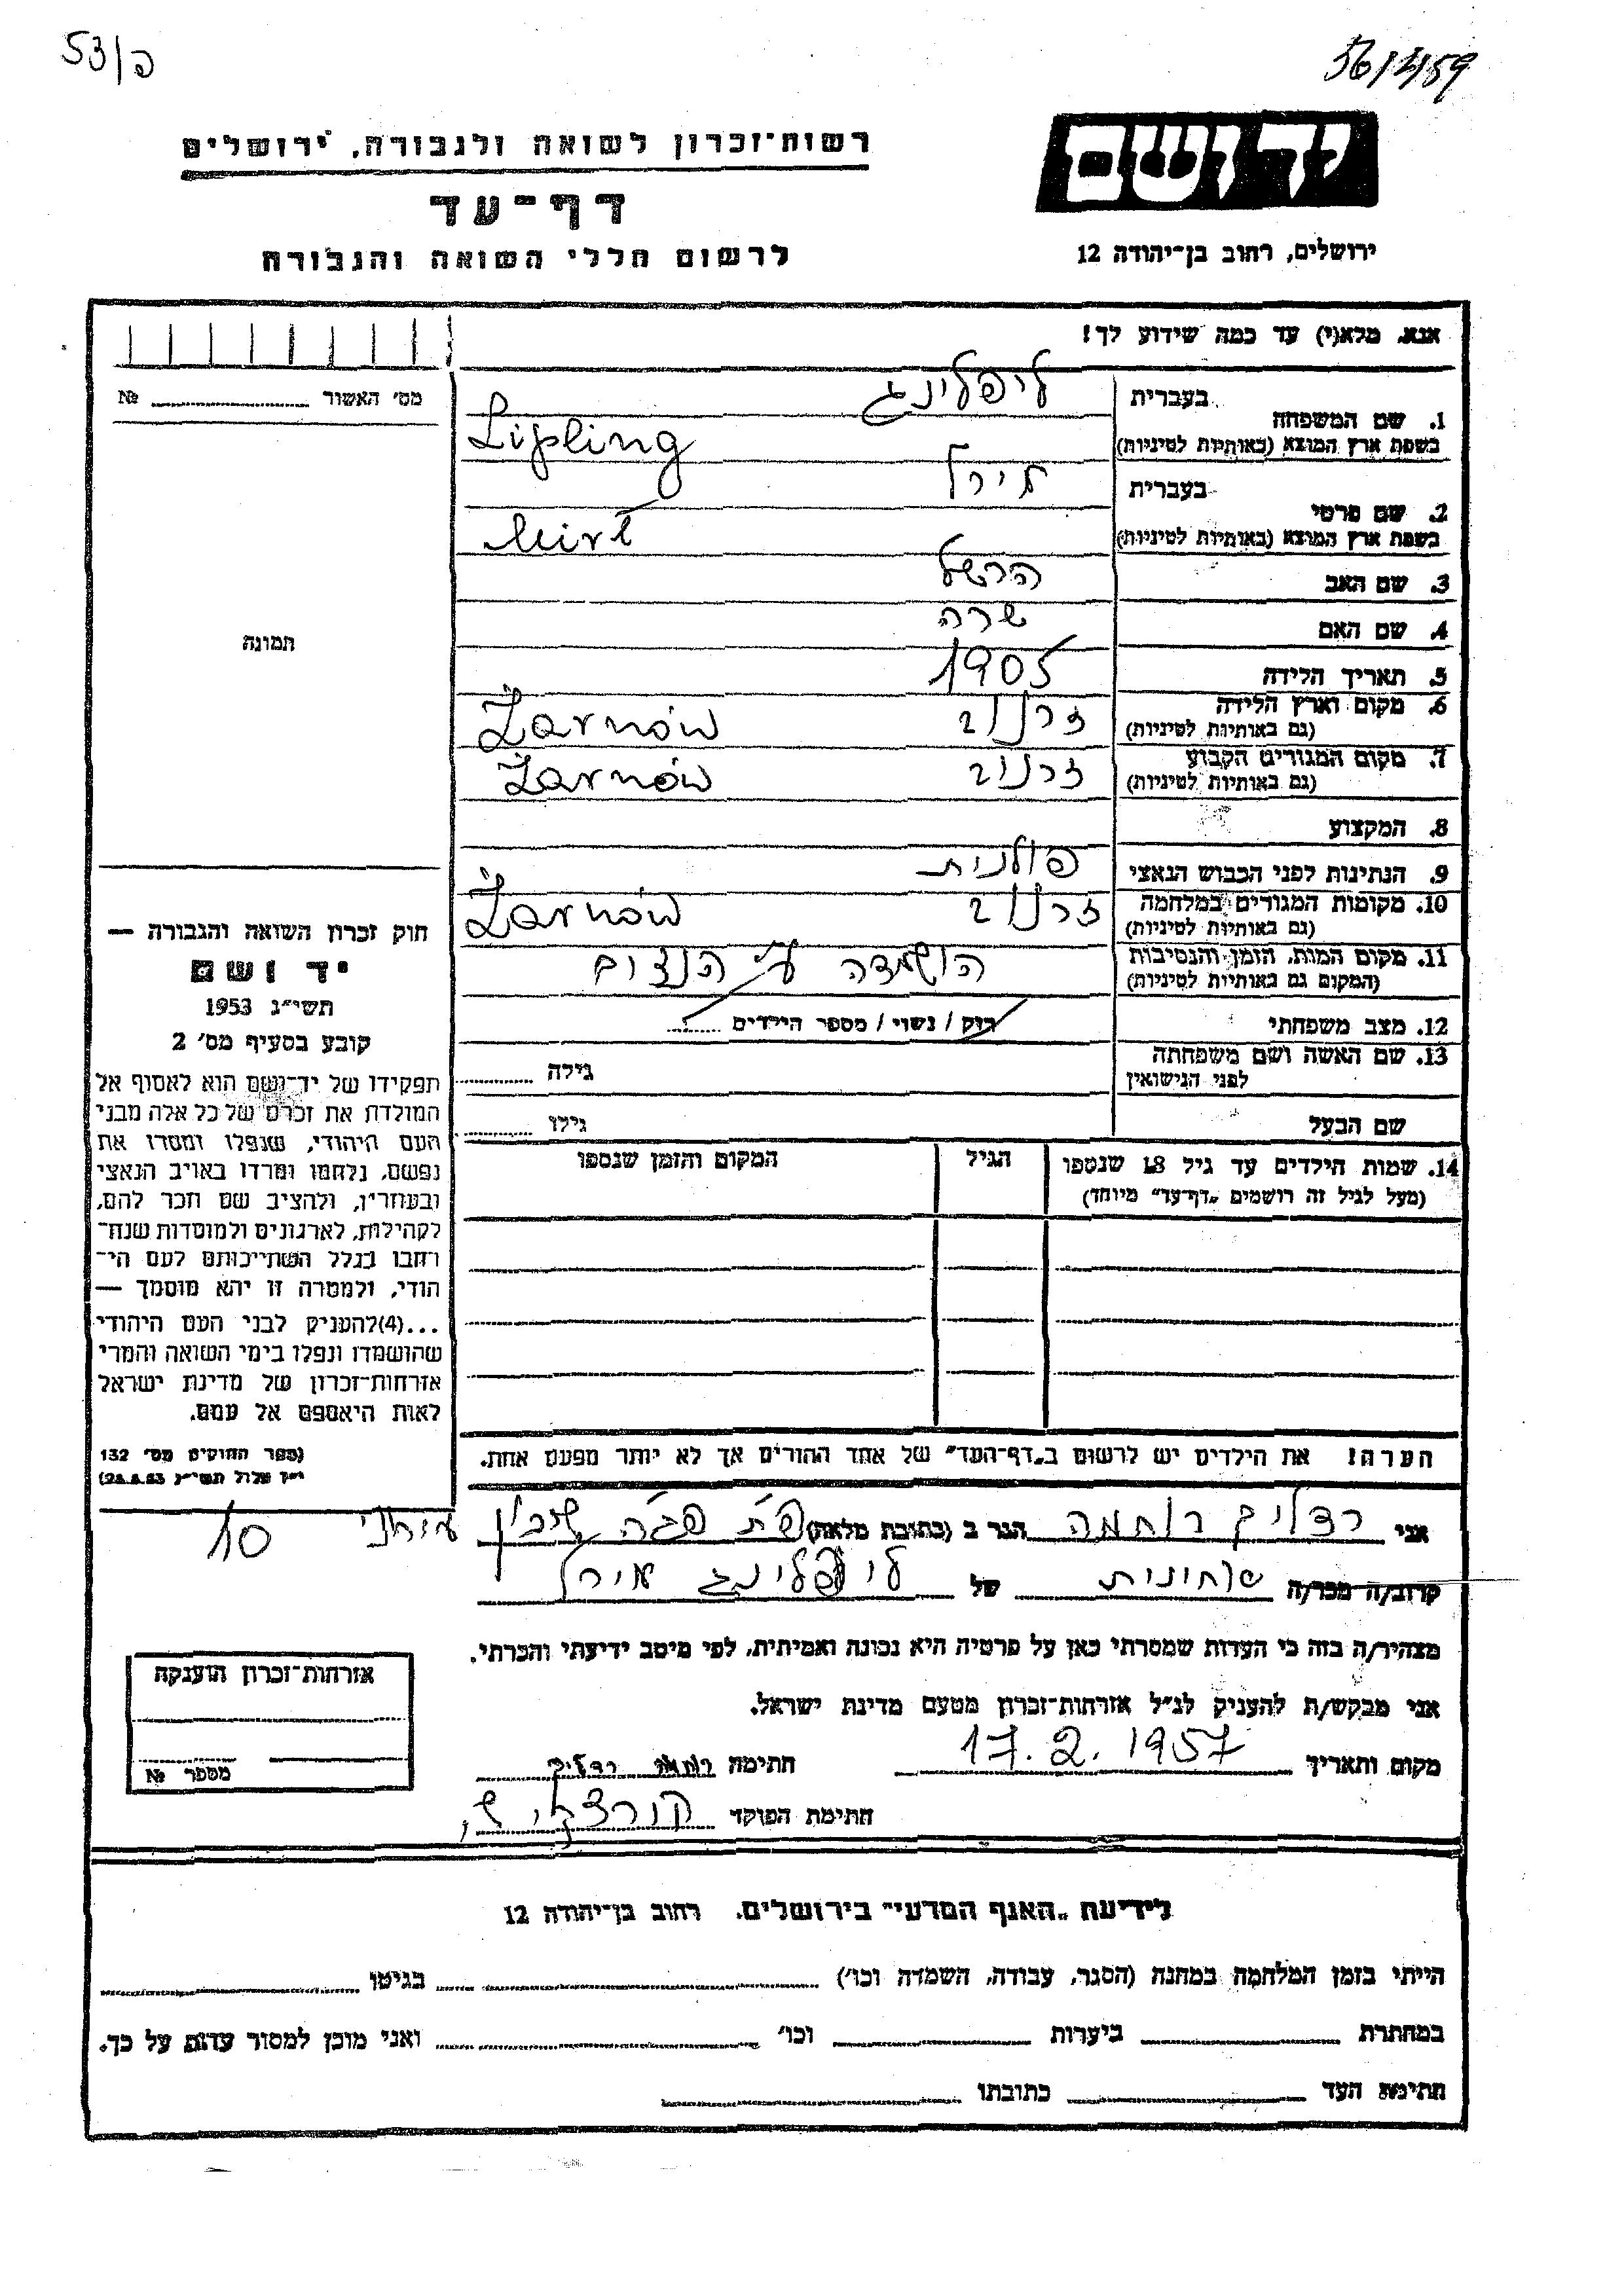 53/פ
רשות־זכרון לשואה ולגבורה, ירושלים
דף־עד
לרשום חללי השואה והגבורה
יד ושם
ירושלים, רחוב בן־יהודה 12
אנא, מלא(י) עד כמה שידוע לך!
מס׳ האשור № 
1. שם המשפחה בעברית ליפלינג
בשפת ארץ המוצא (באותיות לטיניות) Lipling
2. שם פרטי בעברית מירל
בשפת ארץ המוצא (באותיות לטיניות) Mirl
3. שם האב הרשל
4. שם האם שרה
5. תאריך הלידה 1905
6. מקום וארץ הלידה זרנוב Żarnów
(גם באותיות לטיניות)
7. מקום המגורים הקבוע זרנוב Żarnów
(גם באותיות לטיניות)
8. המקצוע
9. הנתינות לפני הכבוש הנאצי פולנית
10. מקומות המגורים במלחמה זרנוב Żarnów
(גם באותיות לטיניות)
11. מקום המות, הזמן והנסיבות הושמדה ע״י הנצים
(המקום גם באותיות לטיניות)
12. מצב משפחתי רוק / נשוי / מספר הילדים
13. שם האשה ושם משפחתה גילה
לפני הנישואין
שם הבעל גילו
14. שמות הילדים עד גיל 18 שנספו הגיל המקום והזמן שנספו
(מעל לגיל זה רושמים „דף־עד״ מיוחד)
הערה! את הילדים יש לרשום ב„דף־העד״ של אחד ההורים אך לא יותר מפעם אחת.
תמונה
חוק זכרון השואה והגבורה —
יד ושם
תשי״ג 1953
קובע בסעיף מס׳ 2
תפקידו של יד־ושם הוא לאסוף אל
המולדת את זכרם של כל אלה מבני
העם היהודי, שנפלו ומסרו את
נפשם, נלחמו ומרדו באויב הנאצי
ובעוזריו, ולהציב שם וזכר להם,
לקהילות, לארגונים ולמוסדות שנח־
רבו בגלל השתייכותם לעם הי־
הודי, ולמטרה זו יהא מוסמך —
...(4) להעניק לבני העם היהודי
שהושמדו ונפלו בימי השואה והמרי
אזרחות־זכרון של מדינת ישראל
לאות היאספם אל עמם.
(ספר החוקים מס׳ 132
י״ז אלול תשי״ג 28.8.53)
אני רדליך רוחמה הגר ב (כתובת מלאה) פ״ת פג׳ה שיכון 10
קרוב/ה מכר/ה של ליפלינג מירל
מצהיר/ה בזה כי העדות שמסרתי כאן על פרטיה היא נכונה ואמיתית, לפי מיטב ידיעתי והכרתי.
אני מבקש/ת להעניק לנ״ל אזרחות־זכרון מטעם מדינת ישראל.
מקום ותאריך 17.2.1957 חתימה רדליך
חתימת הפוקד
אזרחות־זכרון הוענקה
מספר №
לידיעת „האגף המדעי״ בירושלים, רחוב בן־יהודה 12
הייתי בזמן המלחמה במחנה (הסגר, עבודה, השמדה וכו׳) בגיטו
במחתרת ביערות וכו׳ ואני מוכן למסור עדות על כך.
חתימת העד כתובתו